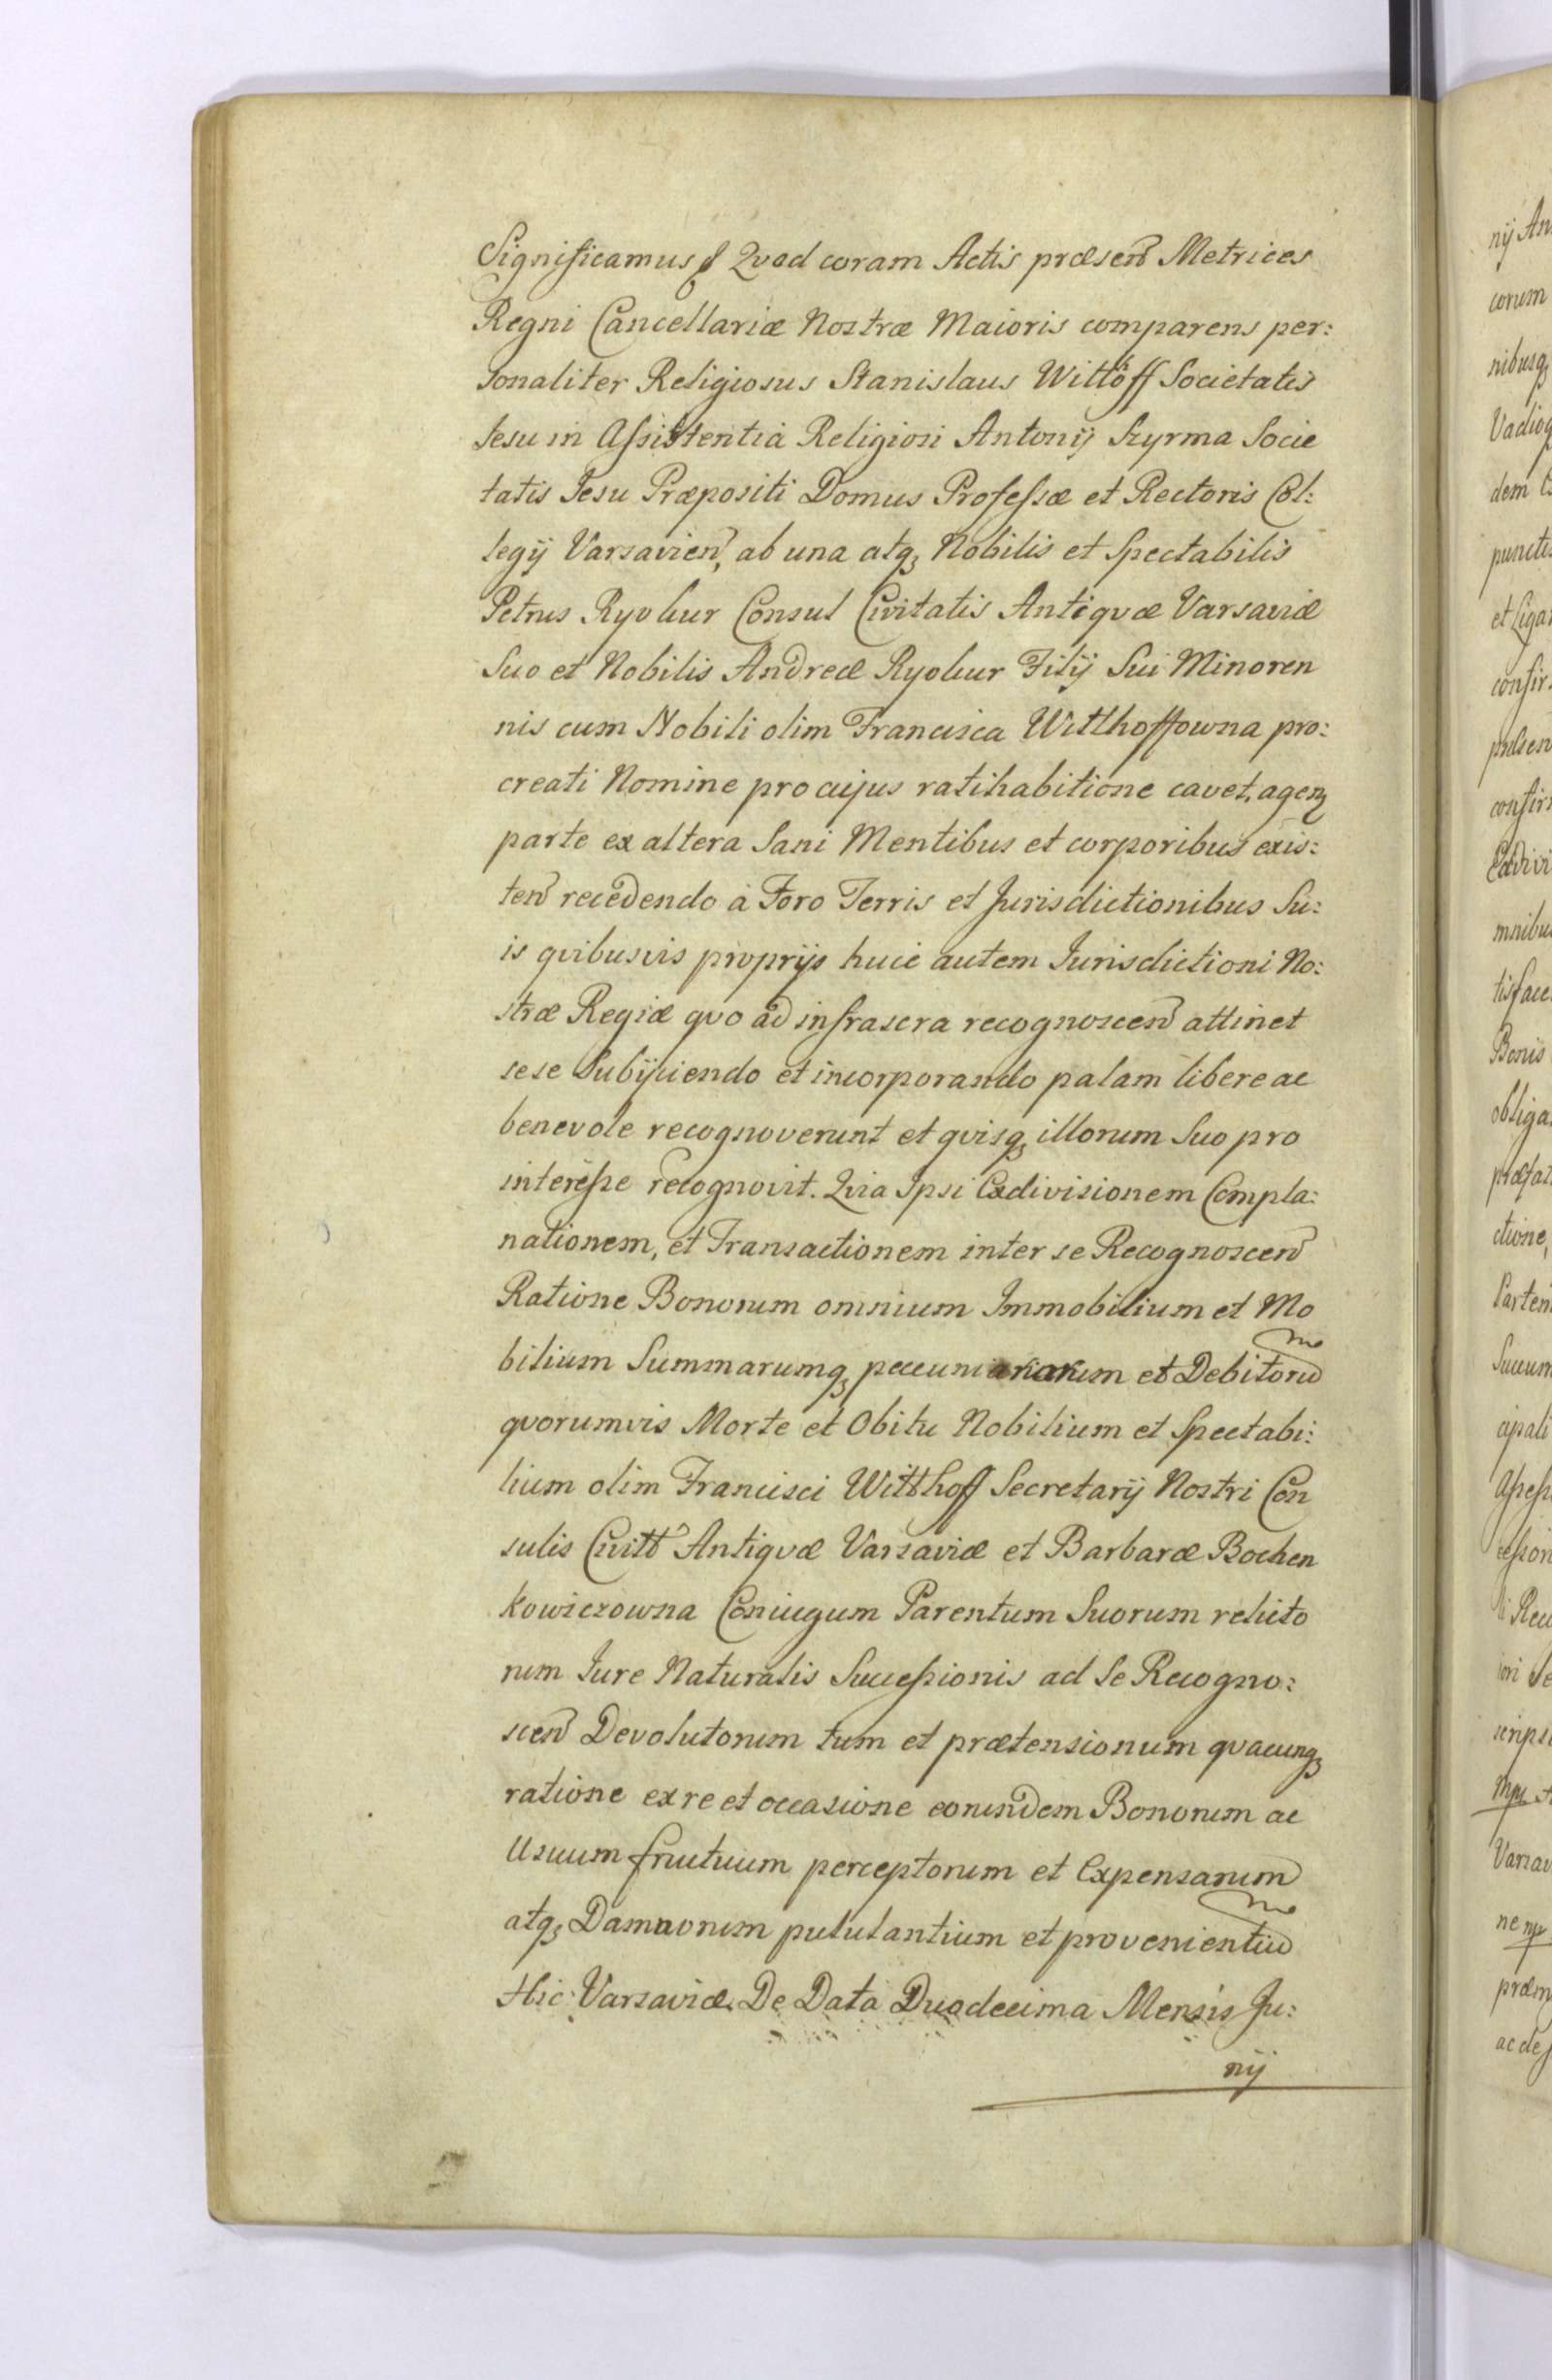 Significamus Quod coram Actis præsen Metrices
Regni Cancellariæ Nostræ Maioris comparens per:
sonaliter Religiosus Stanislaus Wittoff Societatis
Jesu in Assistentia Religiosi Antonij Szyrma Socie
tatis Jesu Præpositi Domus Professæ et Rectoris Col:
legij Varsavien, ab una atq; Nobilis et Spectabilis
Petrus Ryokur Consul Civitatis Antiquæ Varsaviæ
Suo et Nobilis Andreæ Ryokur Filij Sui Minoren
nis cum Nobili olim Francisca Witthoffowna pro:
creati Nomine pro cujus ratihabitione cavet, agen
parte ex altera Sani Mentibus et corporibus exis:
ten recedendo à Foro Terris et Jurisdictionibus Su:
is qvibusvis proprijs huic autem Jurisdictioni No:
stræ Regiæ qvo ad infrascra recognoscen attinet
sese Subijciendo et incorporando palam libere ac
benevole recognoverunt et qvisq; illorum Suo pro
interesse recognovit. Qvia Ipsi Exdivisionem Compla:
nationem, et Transactionem inter se Recognoscen
Ratione Bonorum omnium Immobilium et Mo
bilium Summarumq; peccuniariarum et Debitoru
qvorumvis Morte et Obitu Nobilium et Spectabi:
lium olim Francisci Witthoff Secretarij Nostri Con
sulis Civitt Antiqvæ Varsaviæ et Barbaræ Bochen
kowiczowna Coniugum Parentum Suorum relicto
rum Jure Naturalis Successionis ad Se Recogno:
scen Devolutorum tum et prætensionum qvacunq;
ratione ex re et occasione eorundem Bonorum ac
Usuum fructuum perceptorum et Expensarum
atq; Damnorum pullulantium et provenientiu
Hic Varsaviæ De Data Duodecima Mensis Ju:
nij